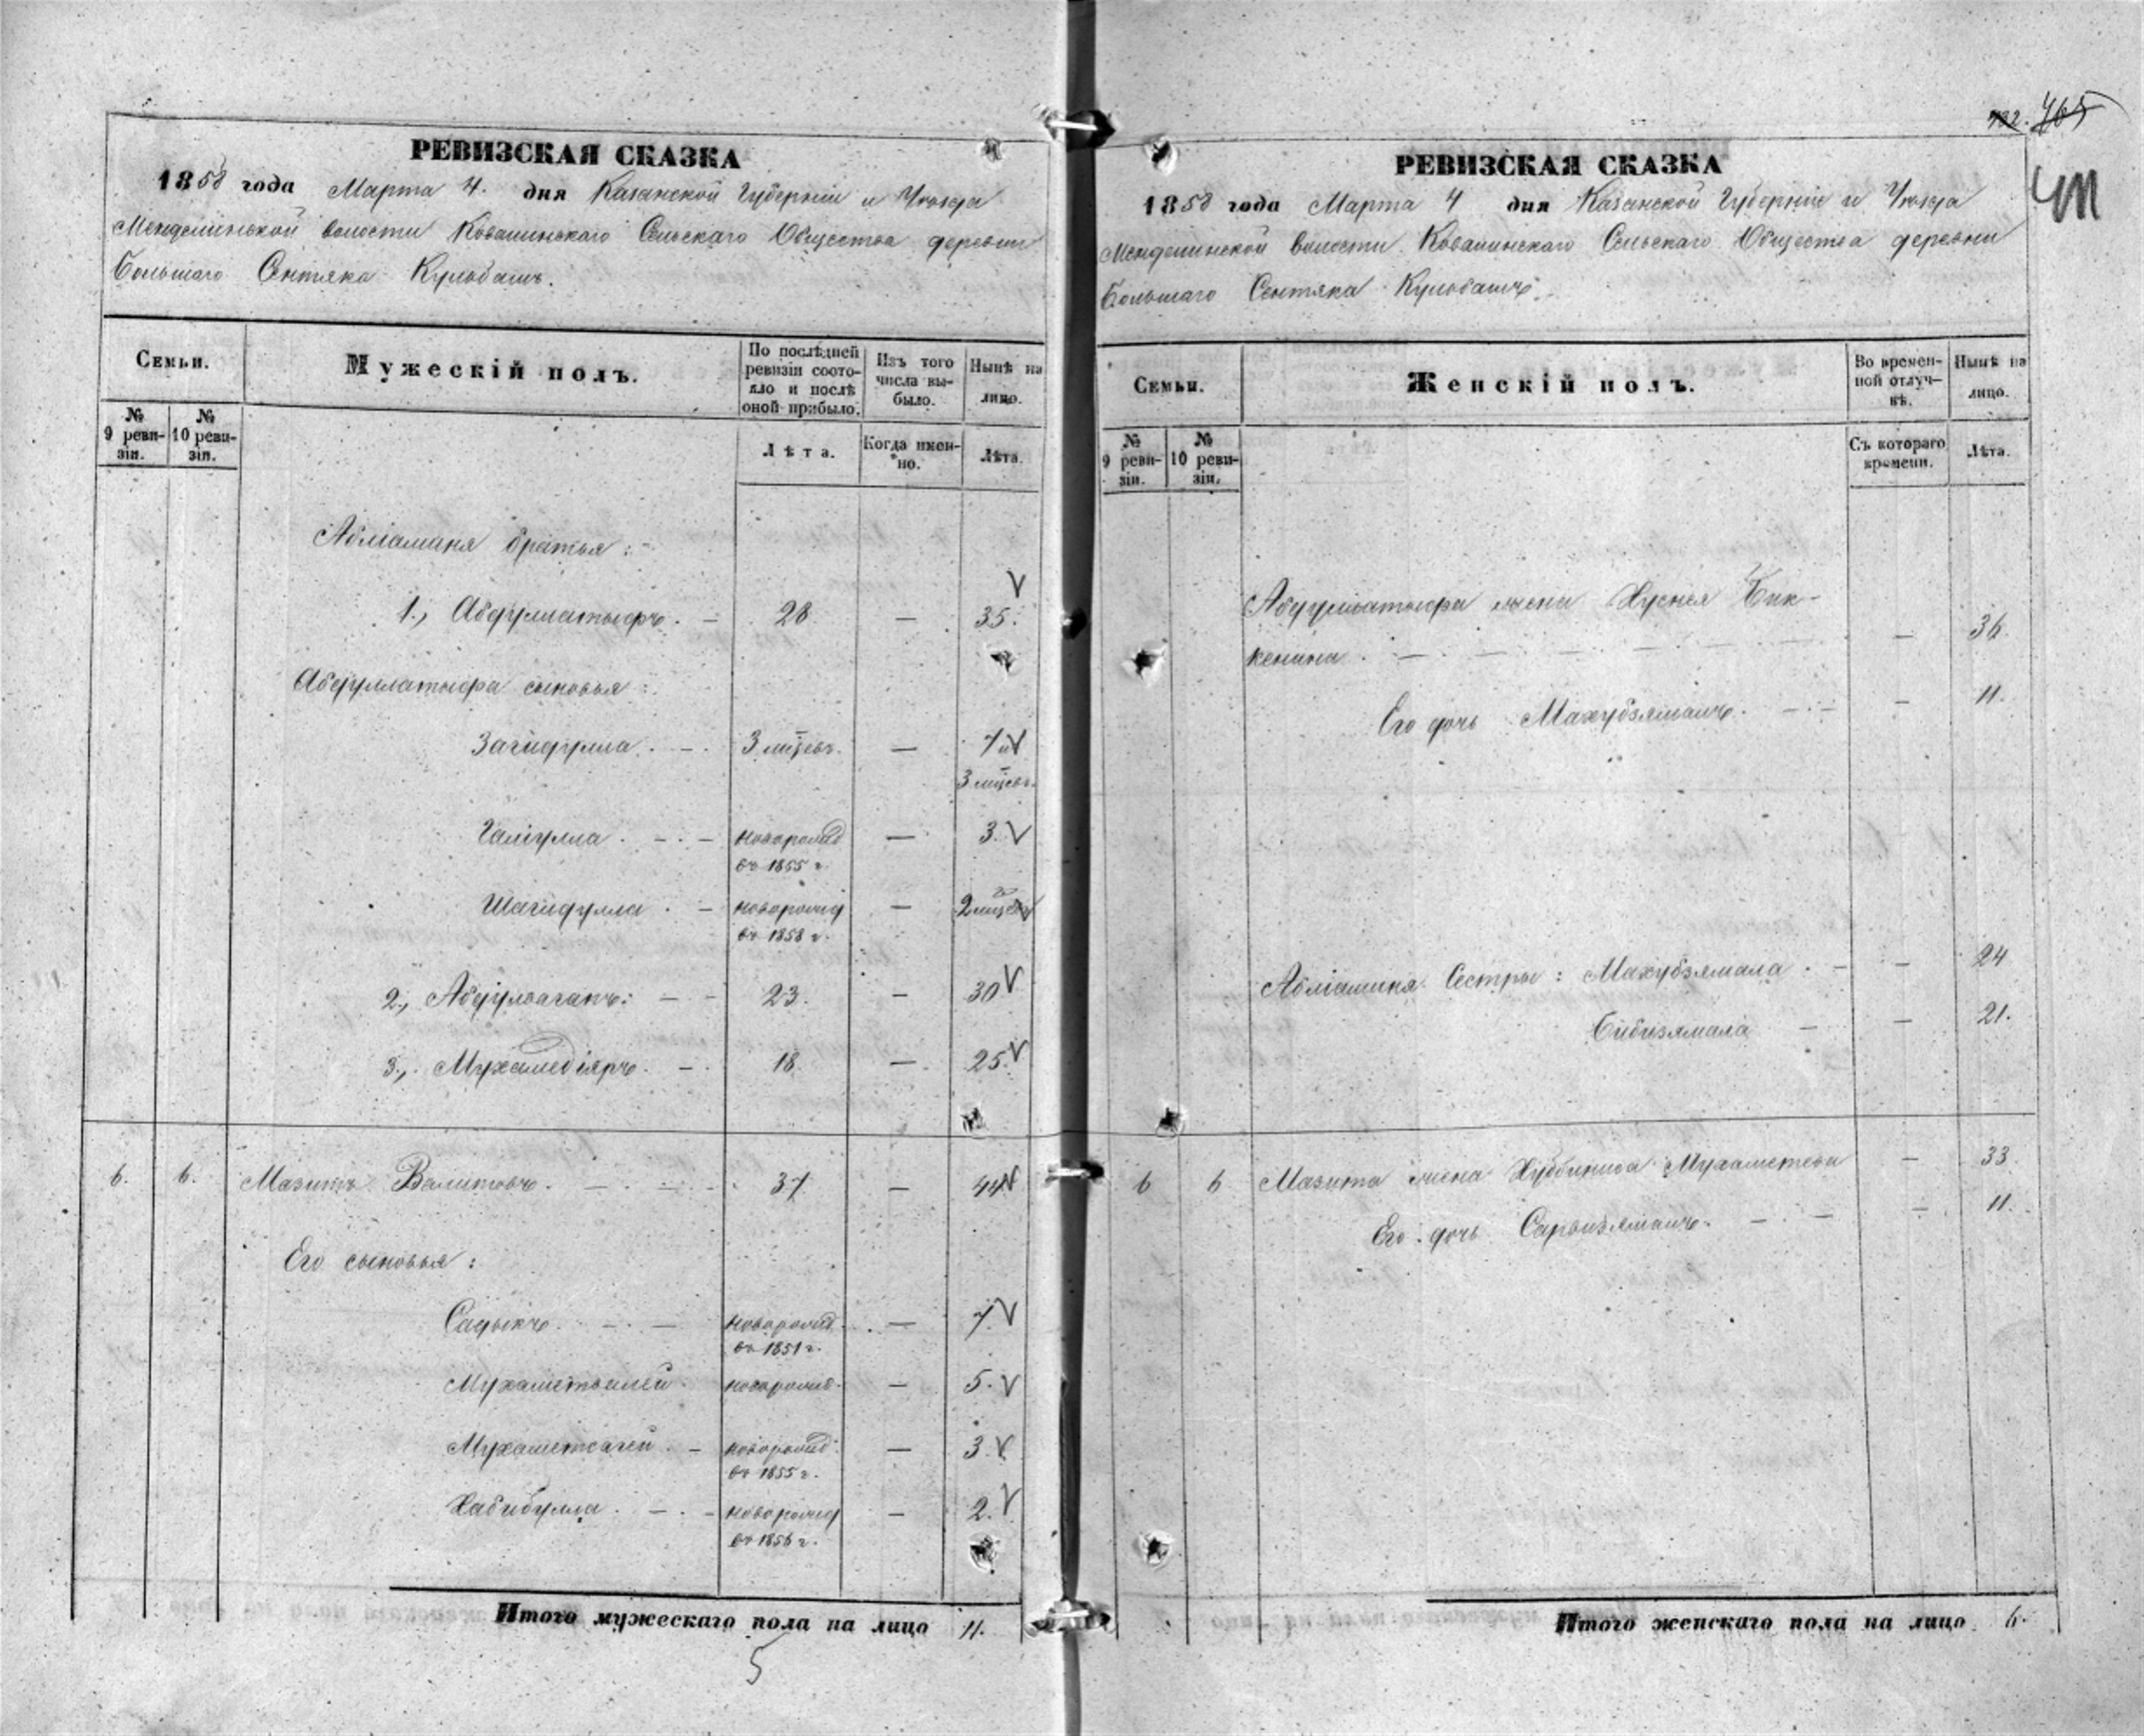 РЕВИЗСКАЯ СКАЗКА
1858 года Марта 4. дня Казанской Губерніи и Уезда
Менделинской волости Ковалинскаго Сельскаго Общества деревни
Большаго Сентяка Кульбашъ.
Семьи.
Мужескій полъ.
По послѣдней ревизіи состояло и послѣ оной прибыло.
Изъ того числа выбыло.
Нынѣ на лицо.
№ 9 ревизіи.
№ 10 ревизіи.
Лѣта.
Когда именно.
Лѣта.
Абліамина братья:
1., Абдуллатыфъ. 28. — 35.
Абдуллатыфа сыновья:
Загидулла. 3 мѣсев. — 7 и
3 мѣсев.
Галіулла. новорожд — 3.
въ 1855 г.
Шагидулла. новорожд — 2 мѣсев
въ 1858 г.
2., Абдулваганъ: 23. — 30
3., Мухамедіяръ. 18. — 25.
6. 6. Мазитъ Валитовъ. 37 — 44
Его сыновья:
Садыкъ. новорожд. — 7.
въ 1851 г.
новорожд. — 5.
новорожд. — 3.
въ 1855 г.
Хабибулла. новорожд — 2.
въ 1856 г.
Итого мужескаго пола на лицо 11.
5
132. 465
411
РЕВИЗСКАЯ СКАЗКА
1858 года Марта 4 дня Казанской Губерніи и Уезда
Менделинской волости Ковалинскаго Сельскаго Общества деревни
Большаго Сентяка Кульбашъ.
Семьи.
Женскій полъ.
Во временной отлучкѣ.
Нынѣ на лицо.
№ 9 ревизіи.
№ 10 ревизіи.
Съ котораго времени.
Лѣта.
Абдуллатыфа жена Хусния Бик-
кенина. — 36.
Его дочь Махубзямалъ. — 11.
Абліамина Сестры: Махубзямала. — 24
Бибизямала — 21.
6 6 Мазита жена Мухаметева — 33.
Его дочь — 11.
Итого женскаго пола на лицо 6.